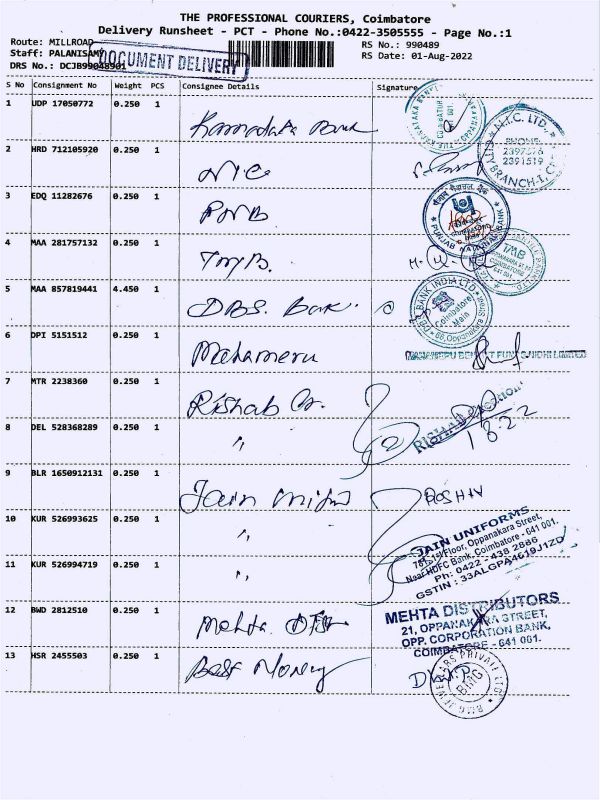 THE PROFESSIONAL COURIERS, Coimbatore
Delivery Runsheet - PCT - Phone No.:0422-3505555 - Page No.:1
Route: MILLROAD RS No.: 990489
Staff: PALANISAMY RS Date: 01-Aug-2022
DRS No.: DCJB99048901
DOCUMENT DELIVERY
S No Consignment No Weight PCS Consignee Details Signature
1 UDP 17050772 0.250 1 Karnataka Bank
2 HRD 712105920 0.250 1 NIC
N.I.C. LTD.,
PHONE:
2397376
2391519
3 EDQ 11282676 0.250 1 PNB
PUNJAB NATIONAL BANK
4 MAA 281757132 0.250 1 TMB.
TMB
COIMBATORE
641 001.
5 MAA 857819441 4.450 1 DBS. Bank.
BANK INDIA LTD
Coimbatore
Main
6 DPI 5151512 0.250 1 Mahameru
7 MTR 2238360 0.250 1 Rishab
1 8 22
8 DEL 528368289 0.250 1 "
9 BLR 1650912131 0.250 1 Jain
ROSHIN
10 KUR 526993625 0.250 1 "
JAIN UNIFORMS
1st Floor, Oppanakara Street,
Near HDFC Bank, Coimbatore - 641 001.
Ph: 0422 - 438 2886
GSTIN : 33ALGPA4619J1ZO
11 KUR 526994719 0.250 1 "
12 BWD 2812510 0.250 1 Mehta
MEHTA DISTRIBUTORS
21, OPPANAKARA STREET,
OPP. CORPORATION BANK,
COIMBATORE - 641 001.
13 HSR 2455503 0.250 1 Best Money
BMG JEWELLERS PRIVATE LTD
BMG